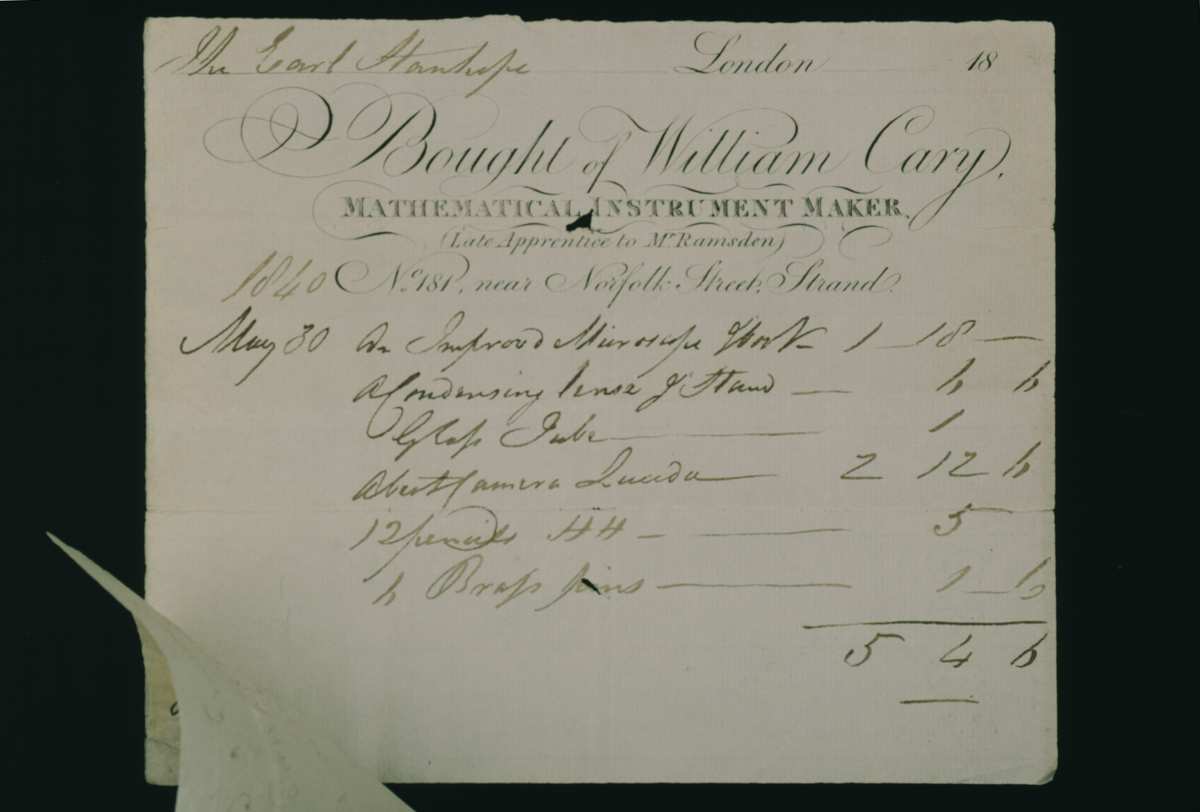 The Earl Stanhope London 18
Bought of William Cary,
MATHEMATICAL INSTRUMENT MAKER,
(Late Apprentice to Mr. Ramsden)
1840 No. 181, near Norfolk Street, Strand.
May 30 An Improvd Microscope 1 18 —
A Condensing lense & Stand — 6 6
Glass Tube — 1
A best Camera Lucida — 2 12 6
12 pencils HH — 5
6 Brass pins — 1 6
5 4 6